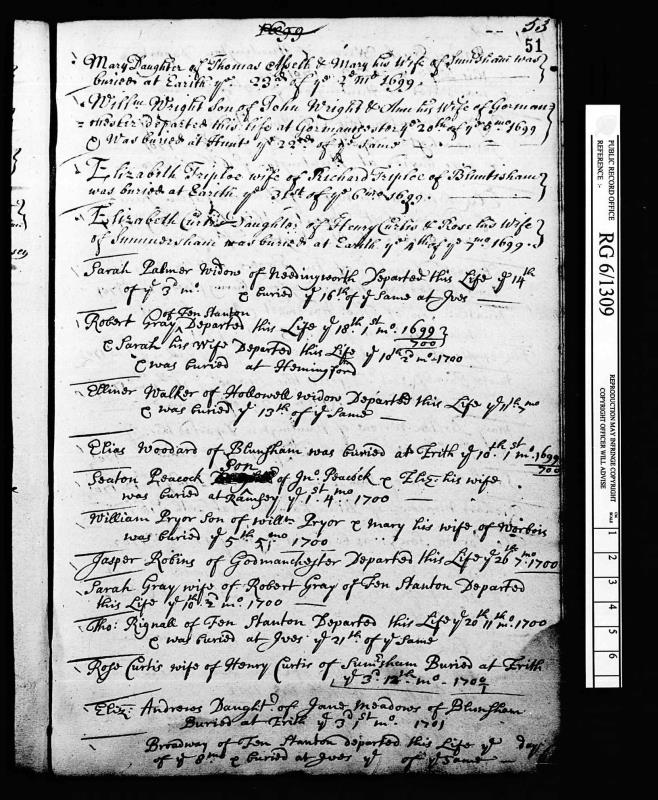 1699
53
51
Mary Daughter of Thomas & Mary his Wife of was
buried at Earith ye 23rd of ye 2d mo 1699.
Willm Wright Son of John Wright & Ann his Wife of Gorman=
=chester departed this life at Gormanchester ye 20th of ye 5mo 1699
& Was buried at Hunt ye 22nd of ye same
Elizabeth Triploe wife of Richard Triploe of Bluntisham
was buried at Earith ye 31st of ye 6mo 1699.
Elizabeth Curtis Daughter of Henry Curtis & Rose his Wife
of Summersham was buried at Earith ye 4th of ye 7mo 1699.
Sarah Palmer Widow of Needingworth Departed this Life ye 14th
of ye 3d mo & buried ye 16th of ye Same at Ives
of Fen Stanton
Robert Gray Departed this Life ye 18th 1st mo. 1699
700
& Sarah his Wife Departed this Life ye 10th 2d mo - 1700
& was buried at Hemingford
Elliner Walker of Hollowell widow Departed this Life ye mo
& was buried ye 13th of ye Same
Elias Woodard of Blunsham was buried at Erith ye 10th 1st mo. 1699
700
Son
Seaton Peacock of Jno. Peacock & Eliz: his wife
was buried at Ramsey ye 1st 4mo 1700
William Pryor Son of Willm Pryor & mary his wife of Worbois
was buried ye 5th mo 1700
Jasper Robins of Godmanchester Departed this Life ye 26th 7mo. 1700
Sarah Gray wife of Robert Gray of Fen Stanton Departed
this Life ye 10th 2d mo. 1700
Tho: Rignall of Fen Stanton Departed this Life ye 20th 11th mo. 1700
& was buried at Ives ye 21th of ye Same
Rose Curtis wife of Henry Curtis of Sumersham Buried at Erith
ye 3d 12th mo - 1700
1
Eliz: Andrews Daughtr of Jane Meadows of Blunsham
Buried at Erith ye 3d 1st mo. 1701
Broadway of Fen Stanton departed this Life ye day
of ye 8mo & buried at Ives ye of ye Same
PUBLIC RECORD OFFICE
REFERENCE :-
RG 6/1309
REPRODUCTION MAY INFRINGE COPYRIGHT
COPYRIGHT OFFICER WILL ADVISE
1 2 3 4 5 6